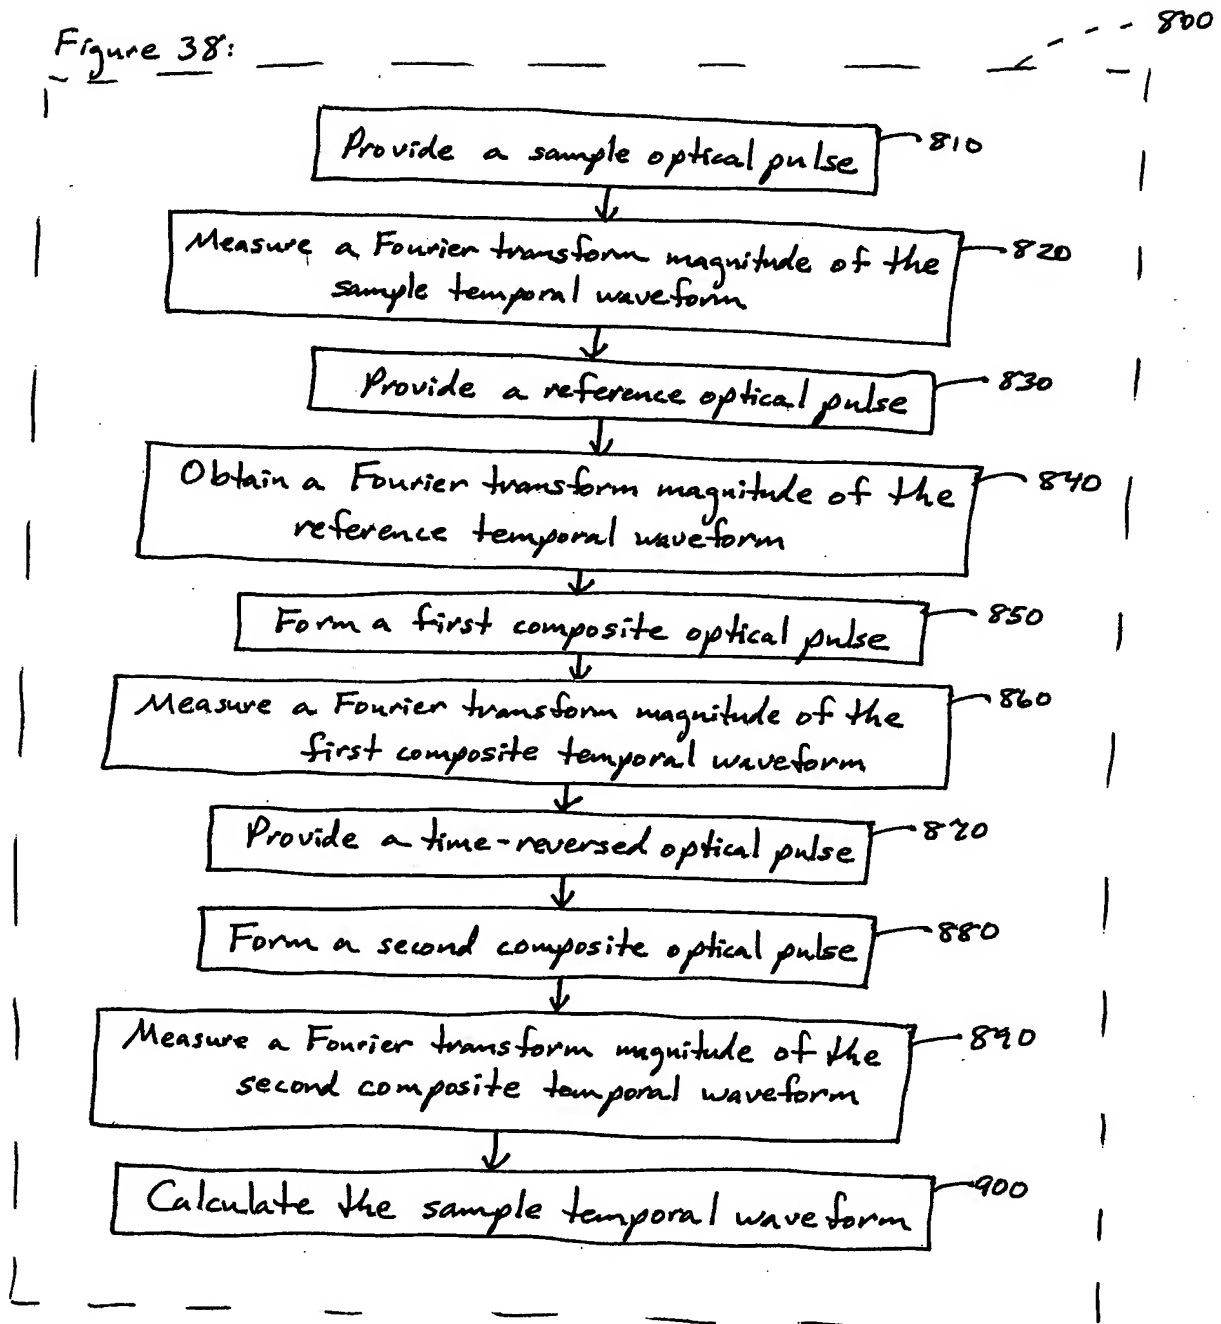 800
Figure 38:
Provide a sample optical pulse
810
Measure a Fourier transform magnitude of the
820
sample temporal waveform
Provide a reference optical pulse
830
Obtain a Fourier transform magnitude of the
840
reference temporal waveform
Form a first composite optical pulse
850
Measure a Fourier transform magnitude of the
860
first composite temporal waveform
Provide a time-reversed optical pulse
870
Form a second composite optical pulse
880
Measure a Fourier transform magnitude of the
890
second composite temporal waveform
Calculate the sample temporal waveform
900